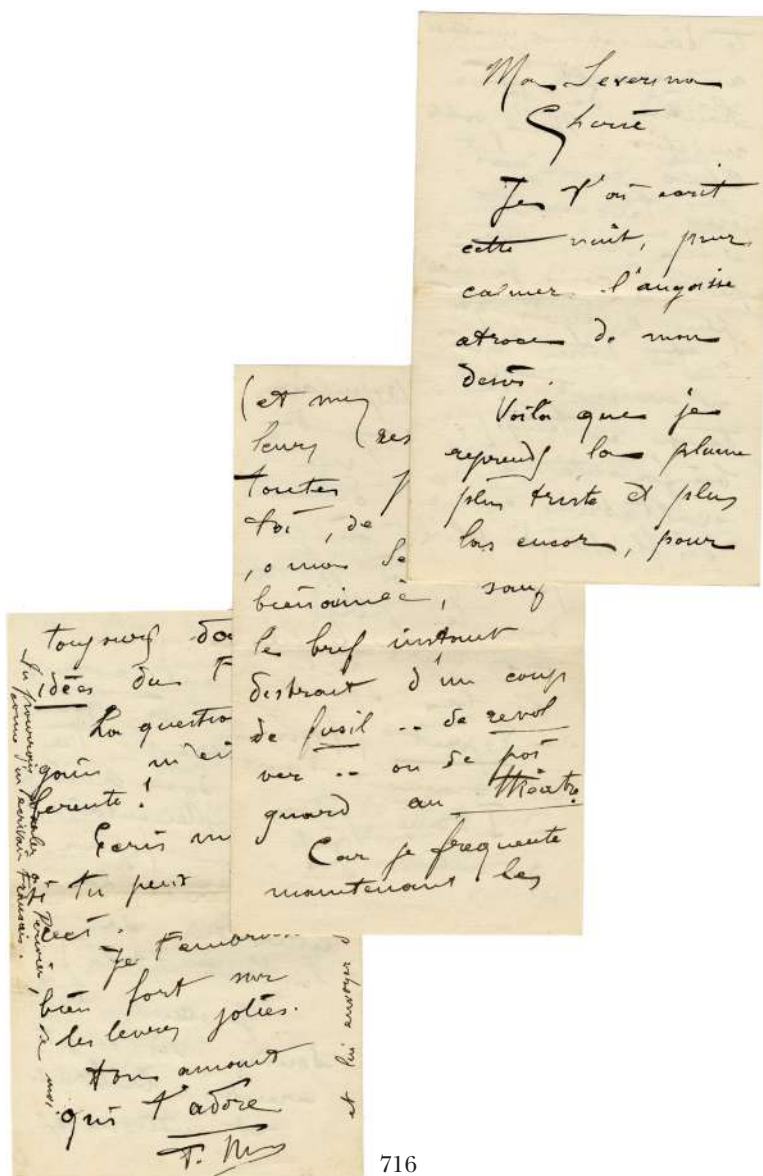 Ma Severina
Cherie
Je t'ai ecrit
cette nuit, pour
calmer l'angoisse
atroce de mon
desir.
Voila que je
reprends la plume
plus triste et plus
las encor, pour
(et mes
leurs (res
toutes p
toi, de
, o ma Se
bienaimée, sauf
le bref instant
distrait d'un coup
de fusil -- de revol
ver -- ou de poi
gnard au théatre.
Car je frequente
maintenant les
toujours da
idées du F
La questio
m'e
ferente!
Ecris m
si tu peux
ceci.
Je t'embrasse
bien fort sur
les levres jolies.
Ton amant
qui t'adore
Tu pourrais parler à Perivier, de moi
comme un ecrivain Français.
et lui envoyer
716